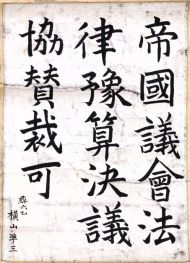 帝國議會法
律豫算決議
協賛裁可
尋六乙
橫山準三